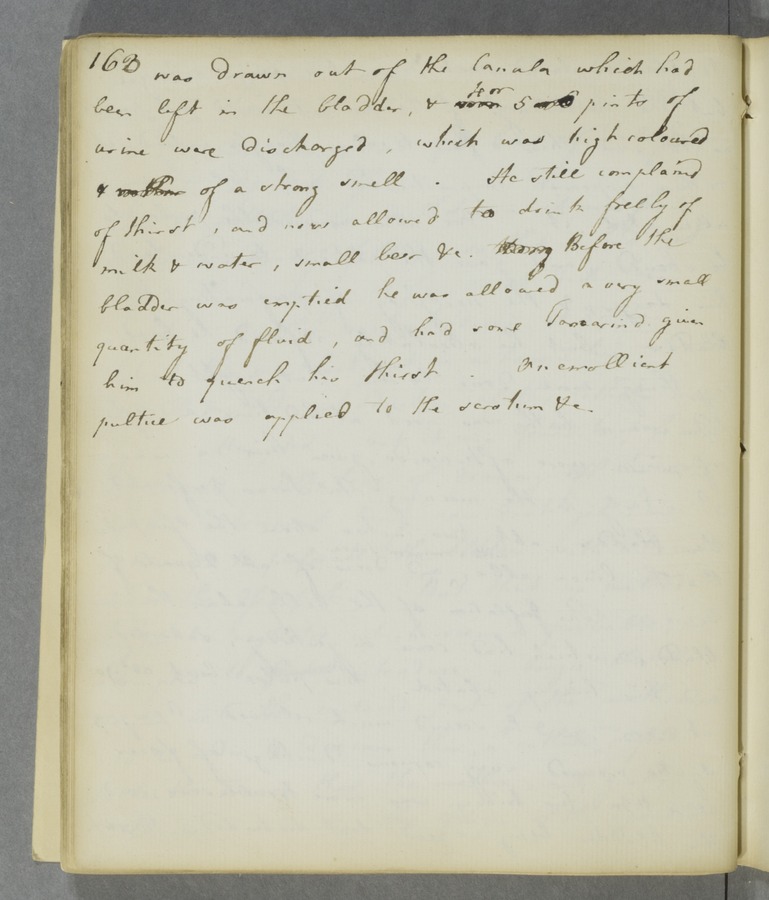 162 was drawn out of the Canula which had
been left in the bladder, & 4 or 5 pints of
urine were discharged, which was high coloured
& of a strong smell. He still complained
of thirst, and now allowed to drink freely of
milk & water, small beer &c. Before the
bladder was emptied he was allowed a very small
quantity of fluid, and had some Tamarind given
him to quench his thirst. An emollient
pultice was applied to the scrotum &c.